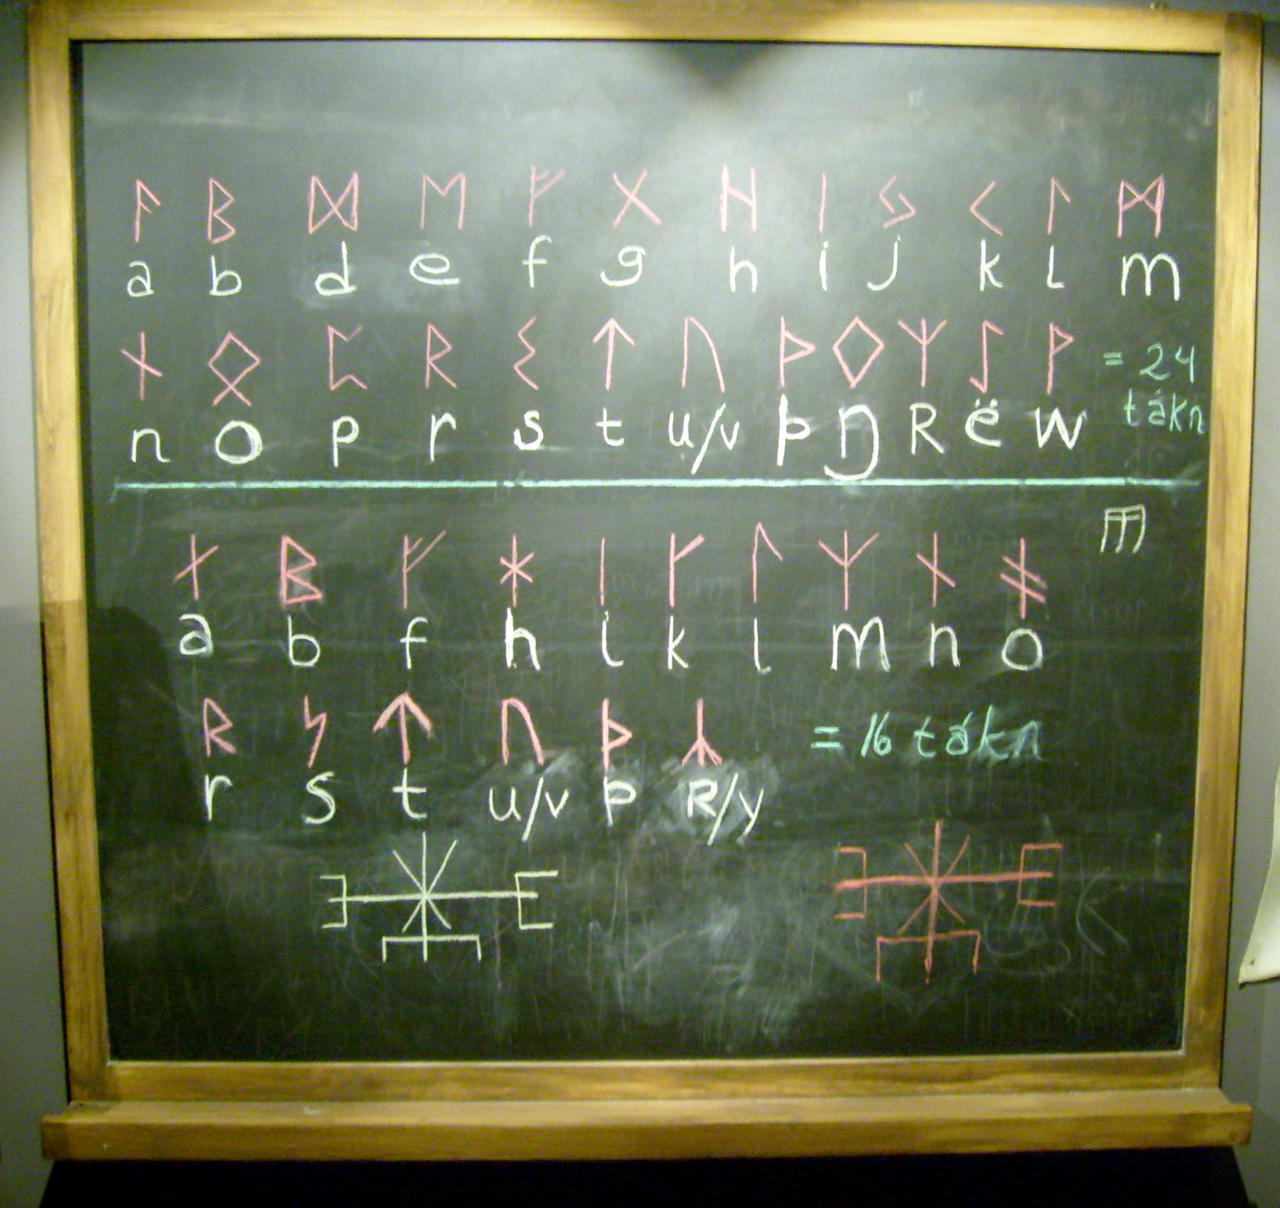 ᚨ ᛒ ᛞ ᛖ ᚠ ᚷ ᚺ ᛁ ᛃ ᚲ ᛚ ᛗ
a b d e f g h i j k l m
ᚾ ᛟ ᛈ ᚱ ᛊ ᛏ ᚢ ᚦ ᛜ ᛉ ᛇ ᚹ = 24
n o p r s t u/v þ ŋ R ë w tákn
ᛅ ᛒ ᚠ ᚼ ᛁ ᚴ ᛚ ᛘ ᚾ ᚬ
a b f h i k l m n o
ᚱ ᛋ ᛏ ᚢ ᚦ ᛦ = 16 tákn
r s t u/v þ R/y